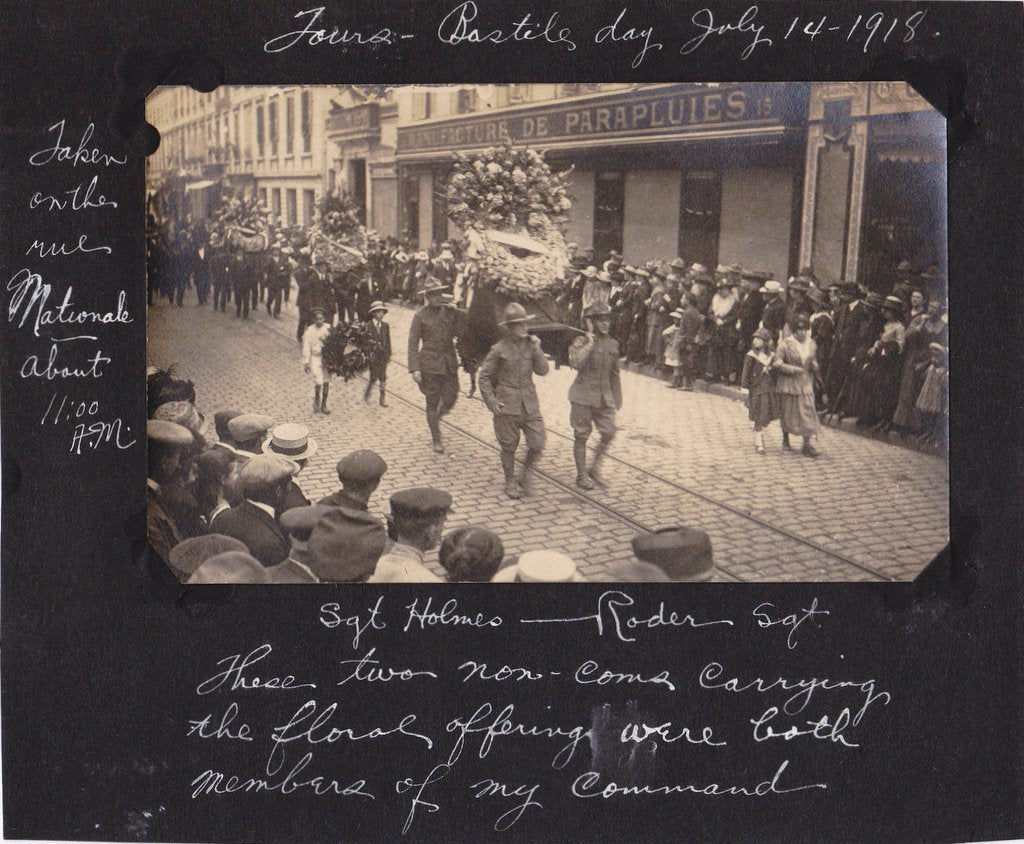 Tours - Bastile day July 14-1918.
Taken
on the
rue
Nationale
about
11:00
A.M.
NUFACTURE DE PARAPLUIES 19
Sgt Holmes — Roder Sgt
These two non-coms carrying
the floral offering were both
members of my command